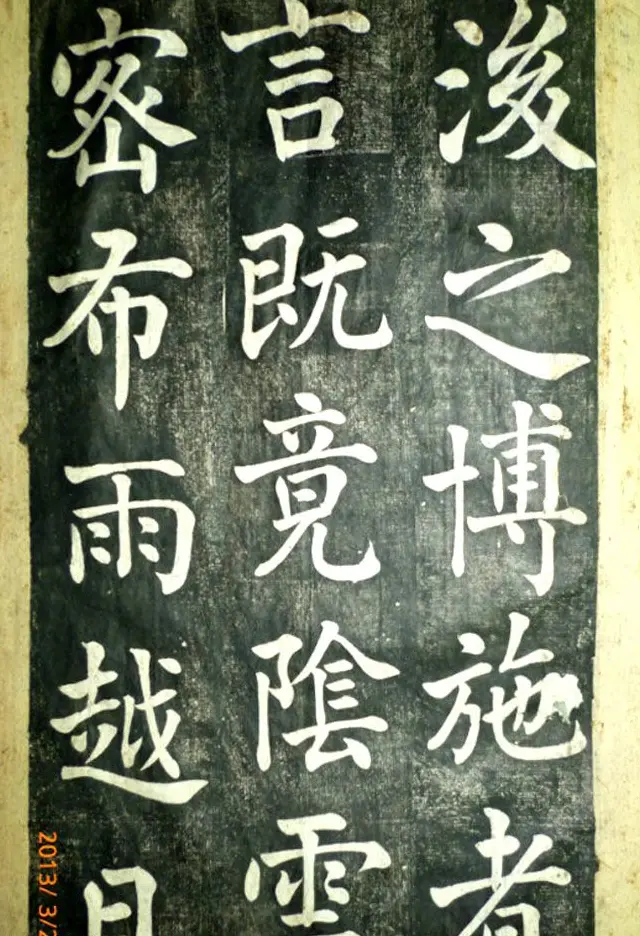 浚之博施者
言既竟陰雲
密布雨越
2013/ 3/2